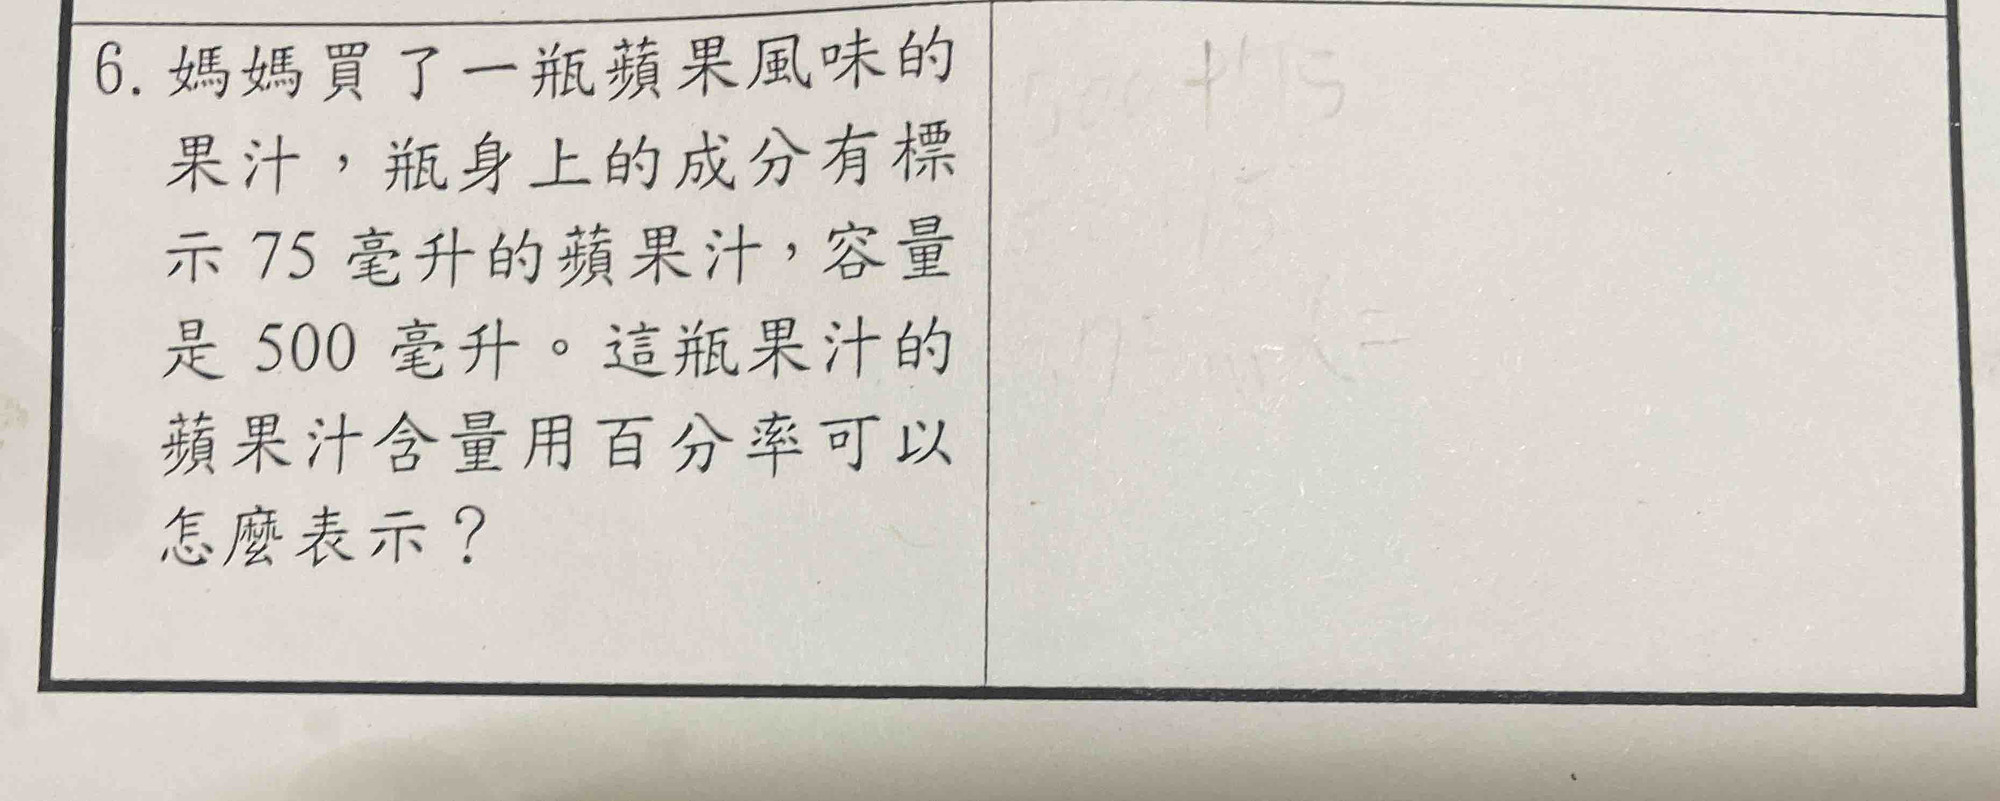 6. 媽媽買了一瓶蘋果風味的
果汁，瓶身上的成分有標
示 75 毫升的蘋果汁，容量
是 500 毫升。這瓶果汁的
蘋果汁含量用百分率可以
怎麼表示？